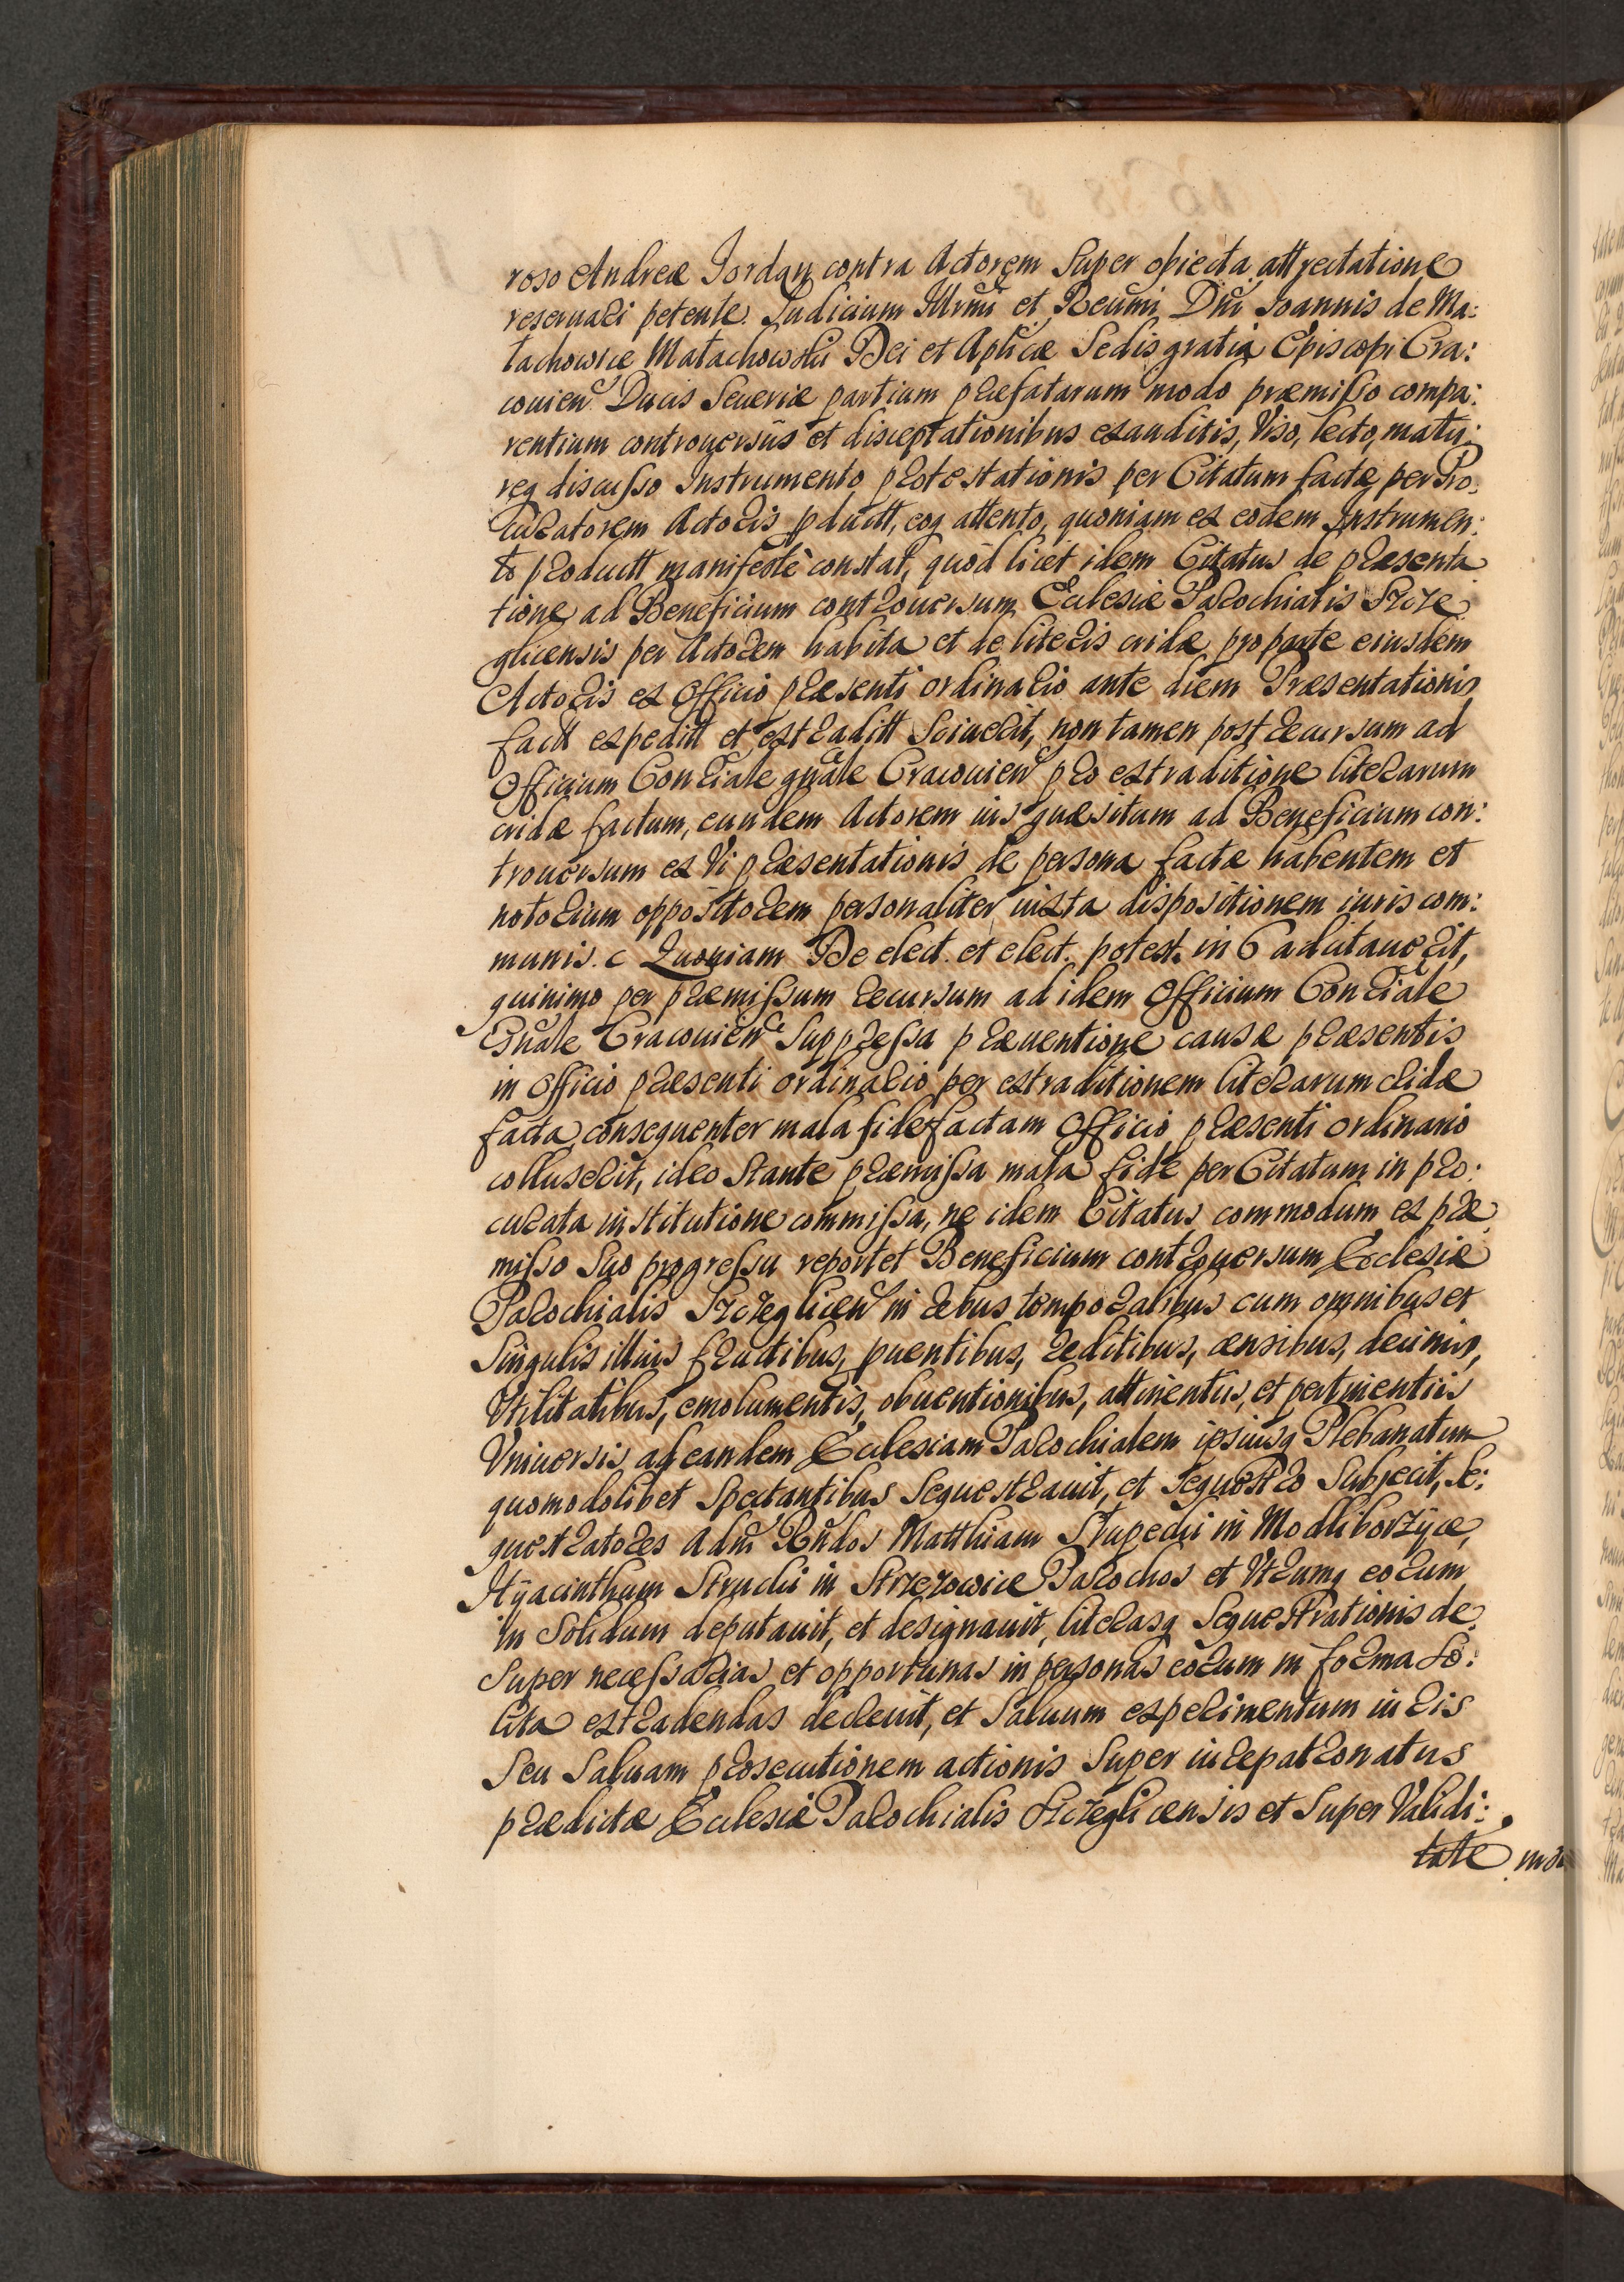 roso Andreæ Jordan contra Actorem Super obiecta attrectatione
reseruari petente. Iudicium Illrmi et Reumi Dni Ioannis de Ma:
łachowice Małachowski Dei et Aplicæ Sedis gratia Episcopi Cra:
couien Ducis Seueriæ partium præfatarum modo præmisso compa:
rentium controuersiis et disceptationibus exauditis, Viso, lecto, matu:
req discusso Instrumento protestationis per Citatum factæ per Pro:
curatorem Actoris pductt, eoq attento, quoniam ex eodem Instrumen:
to productt manifestè constat, quòd licet idem Citatus de præsenta
tione ad Beneficium controuersum Ecclesiæ Parochialis Szcze
glicensis per Actorem habita et de literis cridæ pro parte eiusdem
Actoris ex Officio præsenti ordinario ante diem Præsentationis
factt expeditt et extraditt Sciuerit, non tamen post recursum ad
Officium Consiale gnale Cracouien pro extraditione literarum
cridæ factum, eundem Actorem ius quæsitum ad Beneficium con:
trouersum ex Vi præsentationis de persona factæ habentem et
notorium oppositorem personaliter iuxta dispositionem iuris com:
munis. c Quoniam De elect. et elect. potest. in 6 adcitauerit,
quinimo per præmissum recursum ad idem Officium Consiale
Gnale Cracouien Suppressa præuentione causæ præsentis
in Officio præsenti ordinario per extraditionem literarum cridæ
facta, consequenter mala fide factam Officio præsenti ordinario
colluserit, ideo Stante præmissa mala fide per Citatum in pro:
curata institutione commissa, ne idem Citatus commodum ex præ
misso Suo progressu reportet Beneficium controuersum Ecclesiæ
Parochialis Szczeglicen in rebus temporalibus cum omnibus et
Singulis illius fructibus, puentibus, reditibus, censibus, decimis,
Vtilitatibus, emolumentis, obuentionibus, attinentiis, et pertinentiis
Vniuersis ad eandem Ecclesiam Parochialem ipsiusq Plebanatum
quomodolibet Spectantibus Sequestrauit, et Sequestro Subjecit, Se:
questratores Adm Rndos Matthiam Stupecki in Modliborzyce,
Hyacinthum Strucki in Strzyzowice Parochos et Vtrumq eorum
in Solidum deputauit, et designauit, literasq Sequestrationis de
Super necessarias et opportunas in personas eorum in forma So:
lita extradendas decreuit, et Saluum experimentum iuris
Seu Saluam prosecutionem actionis Super iurepatronatus
prædictæ Ecclesiæ Parochialis Szczeglicensis et Super Validi:
tate